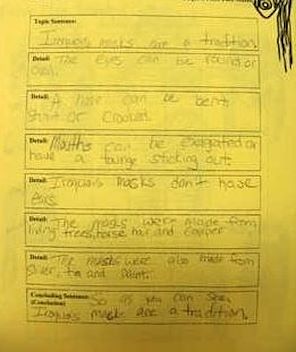 Topic Sentence:
Iroquois masks are a tradition.
Detail: The eyes can be round or
oval.
Detail: A nose can be bent,
short or crooked.
Detail: Mouths can be exagrated or
have a tounge sticking out.
Detail: Iroquois masks don't have
ears.
Detail: The masks were made from
living trees, horse hair and copper
Detail: The masks were also made from
silver, tin and paint.
Concluding Sentence: So as you can see,
(Conclusion)
Iroquois mask are a tradition.